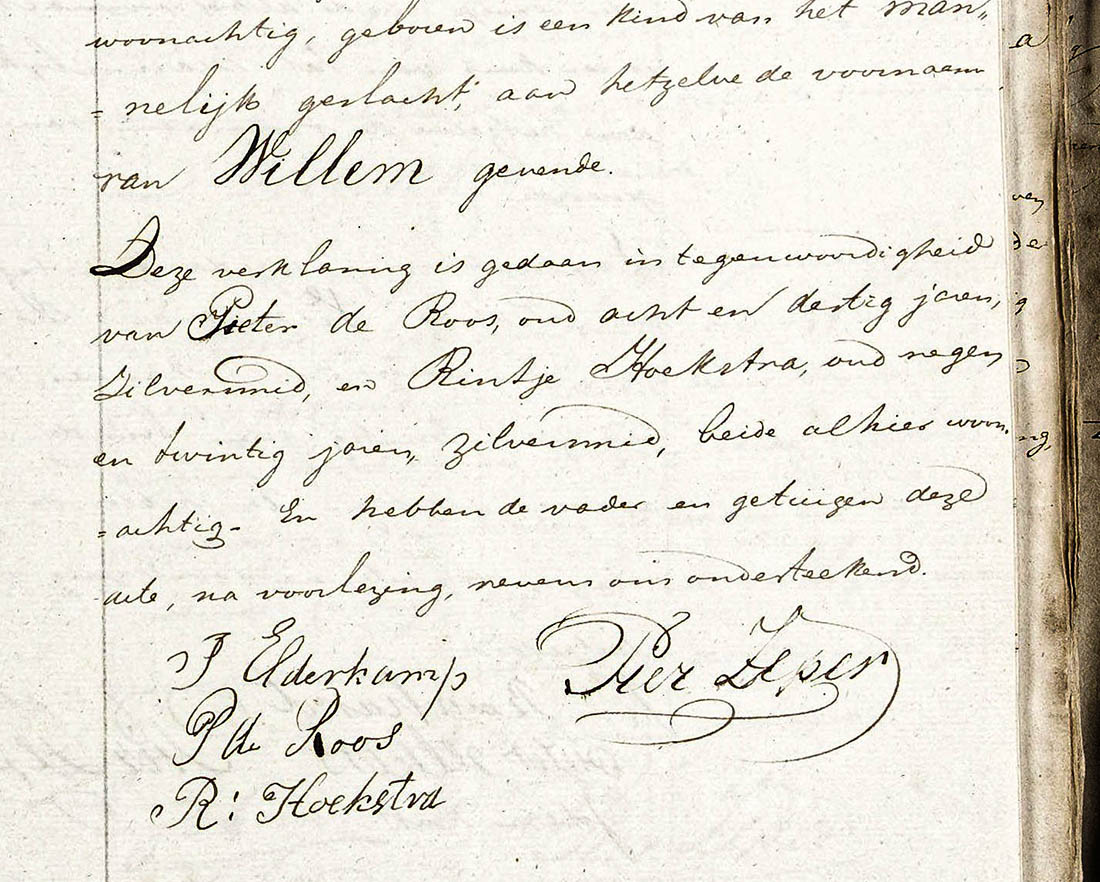 woonachtig, geboren is een kind van het man„
= nelijk geslacht, aan hetzelve de voornaam
van Willem gevende.
Deze verklaring is gedaan in tegenwoordigheid
van Pieter de Roos, oud acht en dertig jaren,
Zilversmid, en Rintje Hoekstra, oud negen
en twintig jaren, zilversmid, beide alhier woon„
= achtig. En hebben de vader en getuigen deze
acte, na voorlezing, nevens ons onderteekend.
J Elderkamp
Pier Zeper
P de Roos
R: Hoekstra